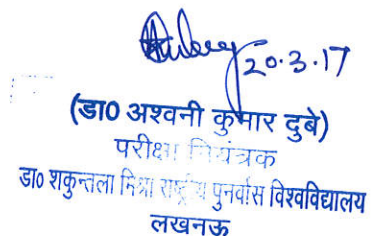 20.3.17
(डा0 अश्वनी कुमार दुबे)
परीक्षा नियंत्रक
डा० शकुन्तला मिश्रा राष्ट्रीय पुनर्वास विश्वविद्यालय
लखनऊ